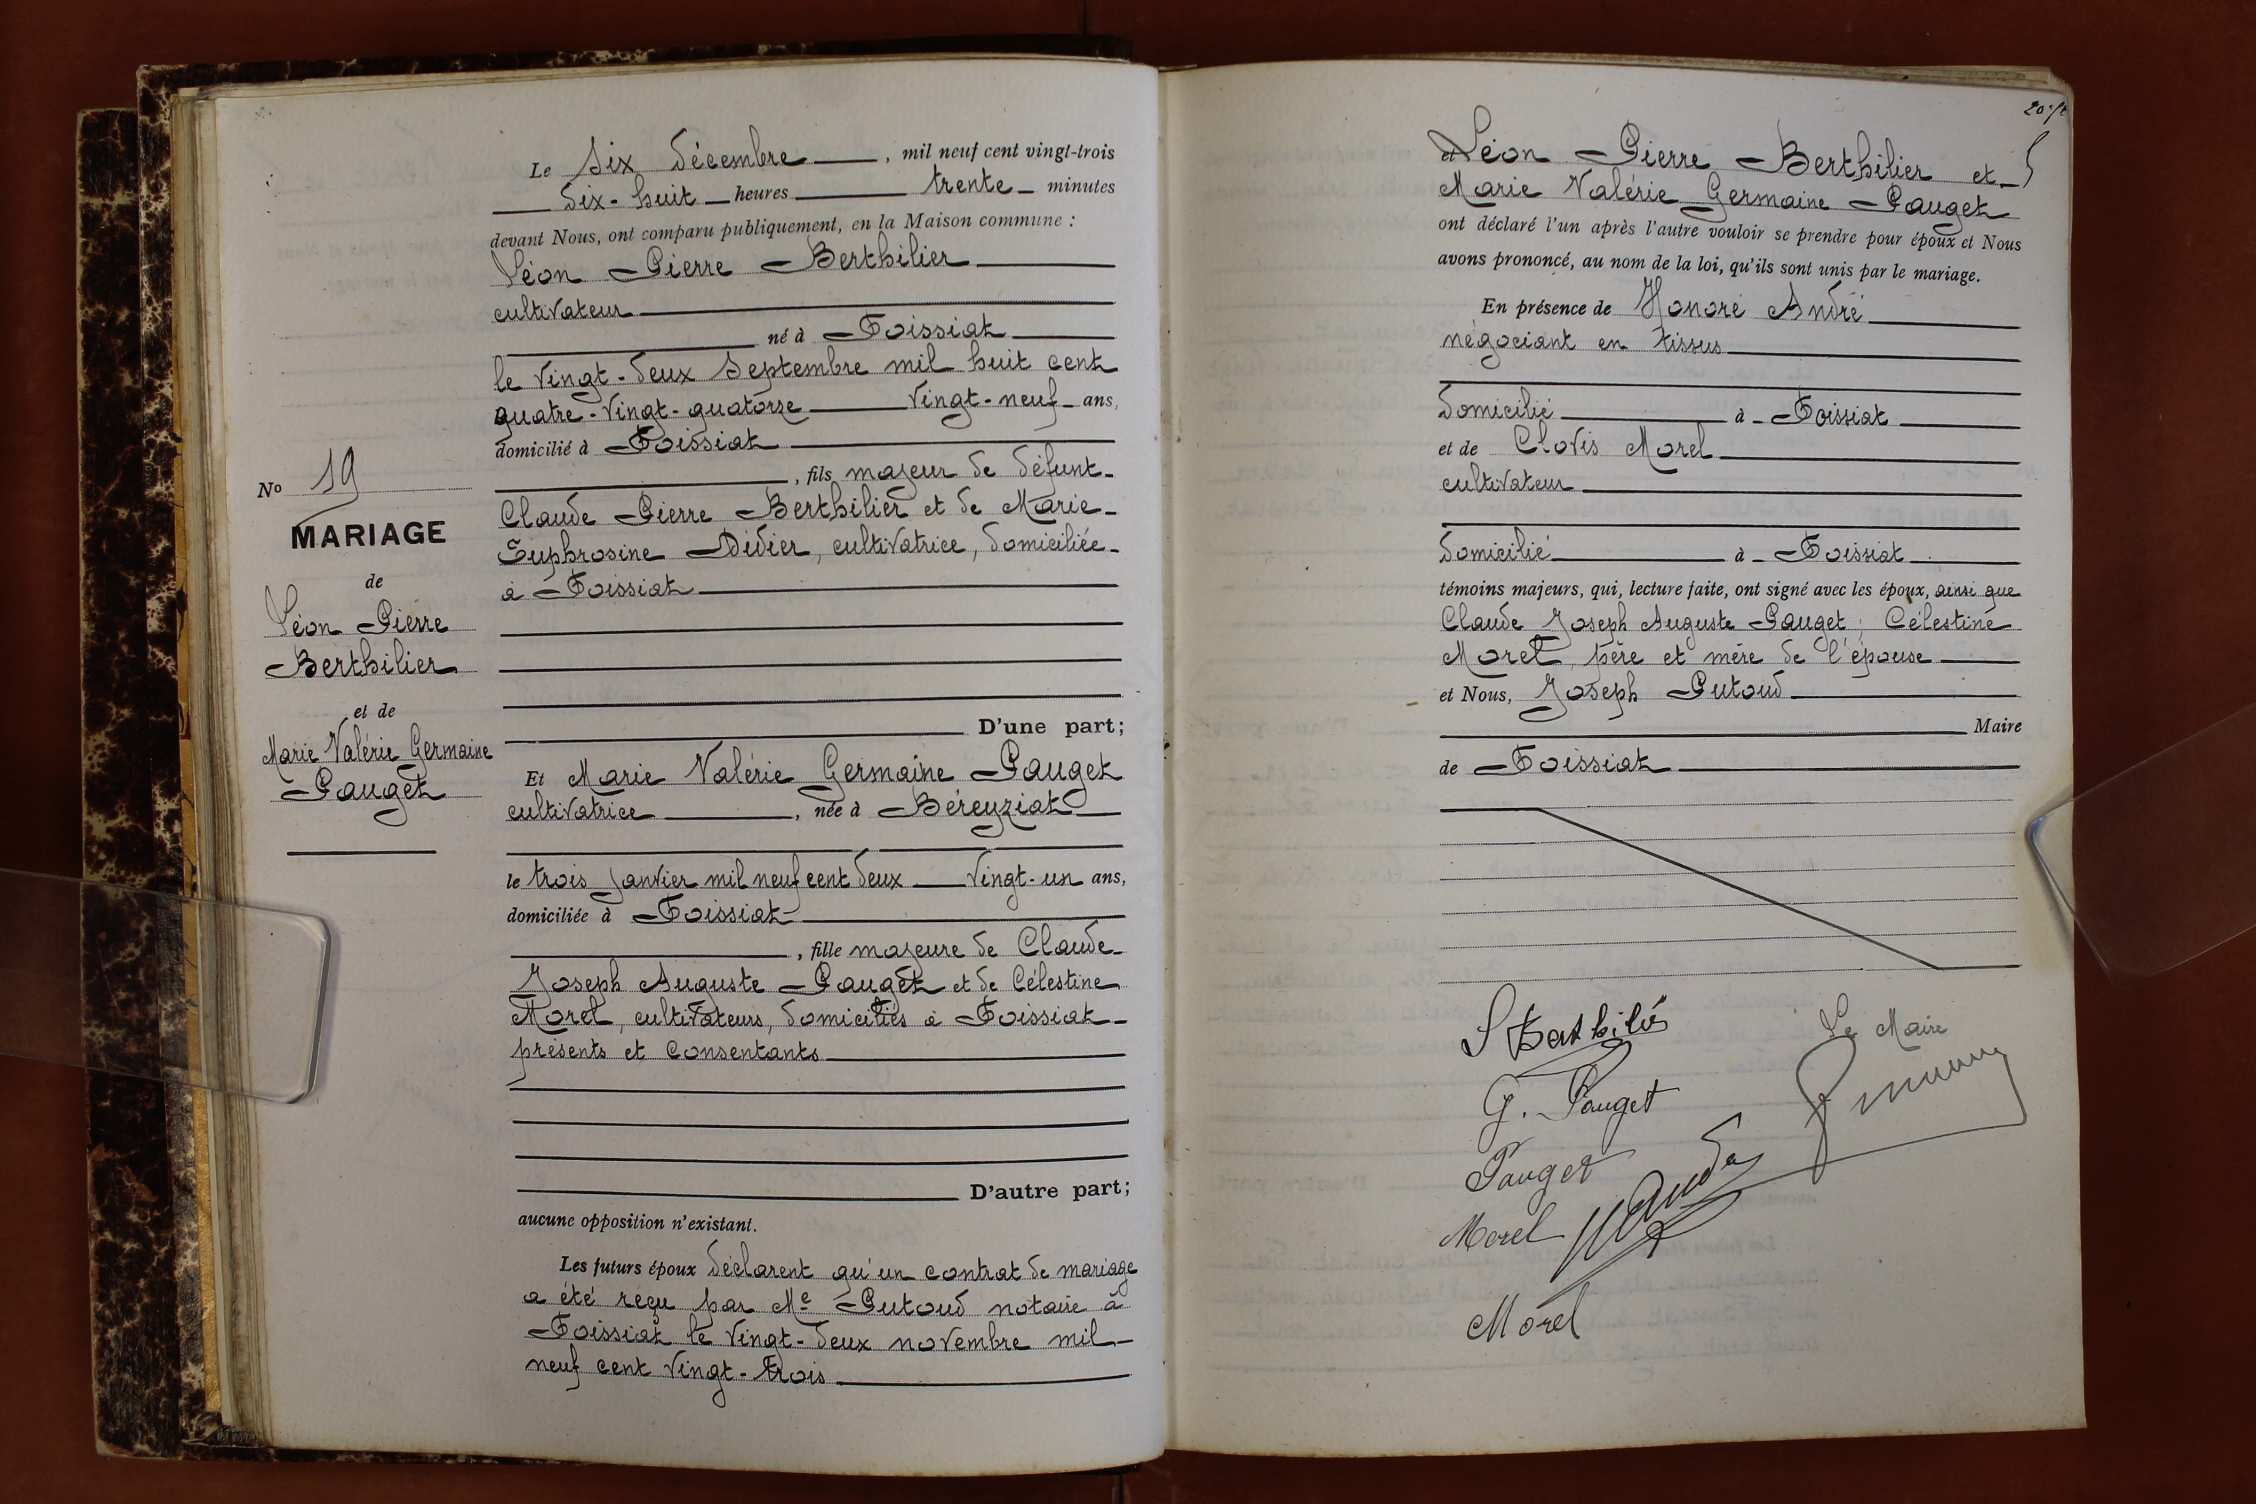 Le six décembre, mil neuf cent vingt-trois
dix-huit heures trente minutes
devant Nous, ont comparu publiquement, en la Maison commune :
Léon Pierre Berthilier
cultivateur
né à Foissiat
le vingt-deux septembre mil huit cent
quatre-vingt-quatorze vingt-neuf ans,
domicilié à Foissiat
, fils majeur de défunt
Claude Pierre Berthilier et de Marie
Euphrosine Didier, cultivatrice, domiciliée
à Foissiat
D'une part;
Et Marie Valérie Germaine Pauget
cultivatrice, née à Béreyziat
le trois janvier mil neuf cent deux vingt-un ans,
domiciliée à Foissiat
, fille majeure de Claude
Joseph Auguste Pauget et de Célestine
Morel, cultivateurs, domiciliés à Foissiat
présents et consentants
D'autre part;
aucune opposition n'existant.
Les futurs époux déclarent qu'un contrat de mariage
a été reçu par Me Putoud notaire à
Foissiat le vingt-deux novembre mil
neuf cent vingt-trois
No 19
MARIAGE
de
Léon Pierre
Berthilier
et de
Marie Valérie Germaine
Pauget
et Léon Pierre Berthilier et
Marie Valérie Germaine Pauget
ont déclaré l'un après l'autre vouloir se prendre pour époux et Nous
avons prononcé, au nom de la loi, qu'ils sont unis par le mariage.
En présence de Honoré André
négociant en tissus
domicilié à Foissiat
et de Clovis Morel
cultivateur
domicilié à Foissiat
témoins majeurs, qui, lecture faite, ont signé avec les époux, ainsi que
Claude Joseph Auguste Pauget, Célestine
Morel, père et mère de l'épouse
et Nous, Joseph Putoud
Maire
de Foissiat
Le Maire
G. Pauget
Pauget
Morel
Morel